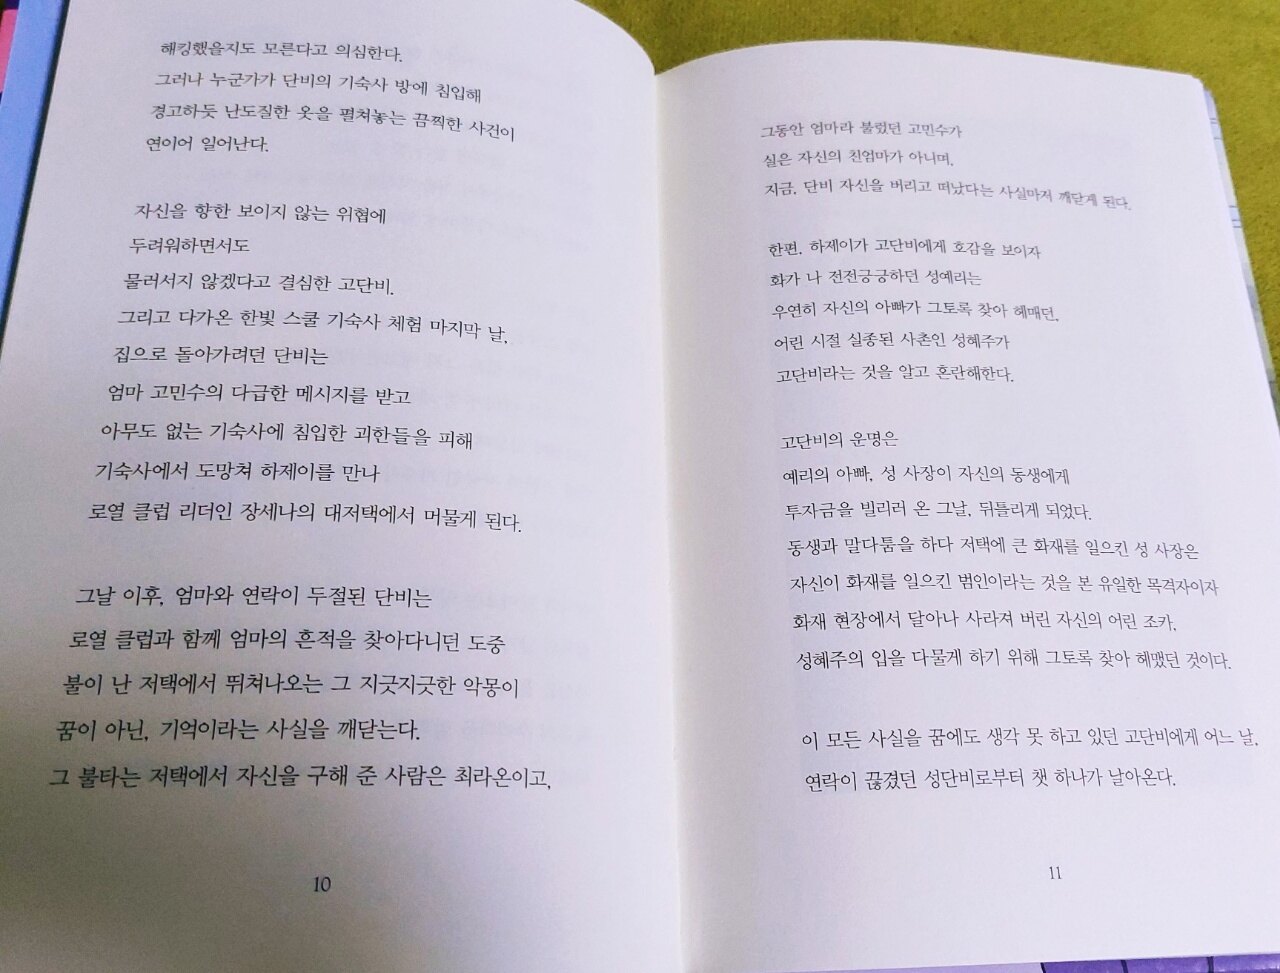 해킹했을지도 모른다고 의심한다.
그러나 누군가가 단비의 기숙사 방에 침입해
경고하듯 난도질한 옷을 펼쳐놓는 끔찍한 사건이
연이어 일어난다.
자신을 향한 보이지 않는 위협에
두려워하면서도
물러서지 않겠다고 결심한 고단비.
그리고 다가온 한빛 스쿨 기숙사 체험 마지막 날,
집으로 돌아가려던 단비는
엄마 고민수의 다급한 메시지를 받고
아무도 없는 기숙사에 침입한 괴한들을 피해
기숙사에서 도망쳐 하제이를 만나
로열 클럽 리더인 장세나의 대저택에서 머물게 된다.
그날 이후, 엄마와 연락이 두절된 단비는
로열 클럽과 함께 엄마의 흔적을 찾아다니던 도중
불이 난 저택에서 뛰쳐나오는 그 지긋지긋한 악몽이
꿈이 아닌, 기억이라는 사실을 깨닫는다.
그 불타는 저택에서 자신을 구해 준 사람은 최라온이고,
10
그동안 엄마라 불렀던 고민수가
실은 자신의 친엄마가 아니며,
지금, 단비 자신을 버리고 떠났다는 사실마저 깨닫게 된다.
한편, 하제이가 고단비에게 호감을 보이자
화가 나 전전긍긍하던 성예리는
우연히 자신의 아빠가 그토록 찾아 헤매던,
어린 시절 실종된 사촌인 성혜주가
고단비라는 것을 알고 혼란해한다.
고단비의 운명은
예리의 아빠, 성 사장이 자신의 동생에게
투자금을 빌리러 온 그날, 뒤틀리게 되었다.
동생과 말다툼을 하다 저택에 큰 화재를 일으킨 성 사장은
자신이 화재를 일으킨 범인이라는 것을 본 유일한 목격자이자
화재 현장에서 달아나 사라져 버린 자신의 어린 조카,
성혜주의 입을 다물게 하기 위해 그토록 찾아 헤맸던 것이다.
이 모든 사실을 꿈에도 생각 못 하고 있던 고단비에게 어느 날,
연락이 끊겼던 성단비로부터 챗 하나가 날아온다.
11